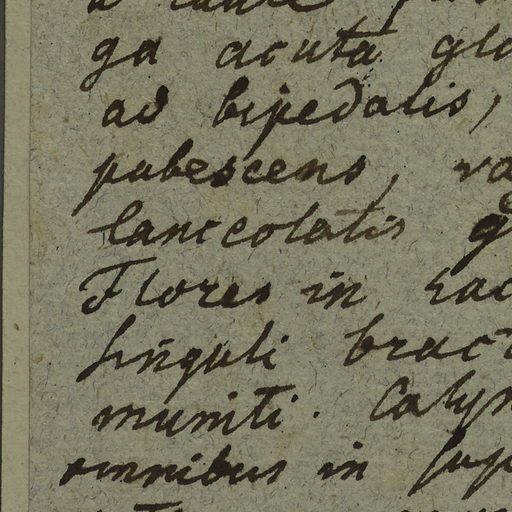 ga acuta gla
ad bipedalis,
pubescens, va
lanceolatis g
Flores in rac
singuli bract
muniti. Calyx
omnibus in sup